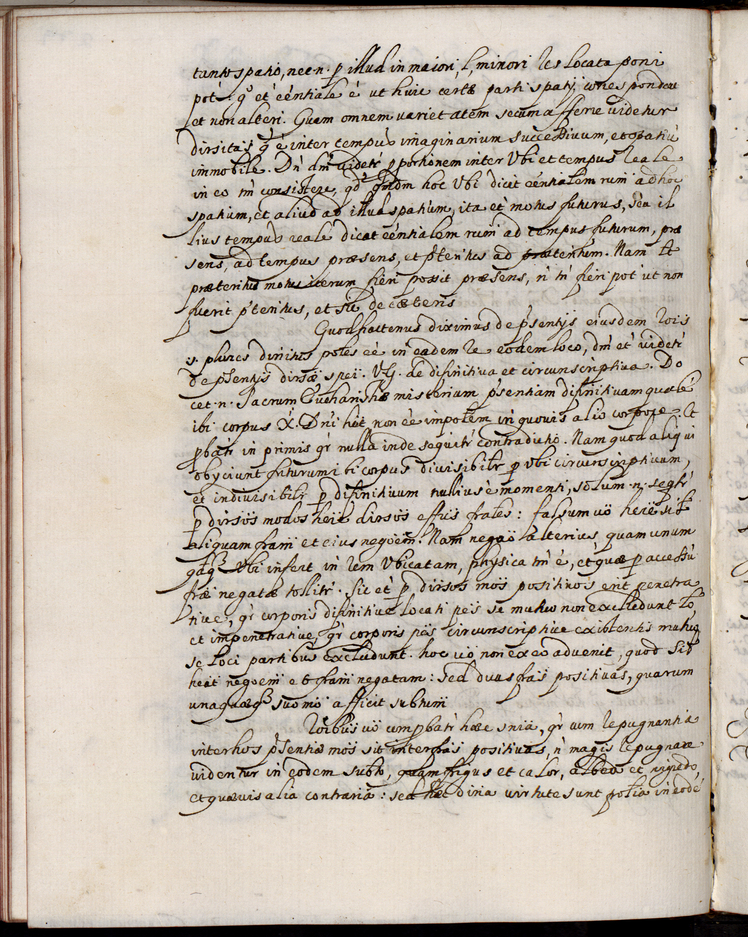 tanto spatio, nec n. p illud in maiori, l, minori res locata poni
pot: q' et' eentiale e ut huic certæ parti spatij corresponden
et non alteri. Quam omnem varietatem secum afferre videtur
dirsitas q e' inter tempus imaginarium successivum, et spatiu
immobile. Dn' dm' videtr pportionem inter Vbi et tempus reale
in eo tm consistere, qd' hoc Vbi dicat eentialem rum ad hoc
spatium, et aliud ad illud spatium, ita et motus futurus, seu il
lius tempus reale dicat eentialem rum ad tempus futurum, præ
sens, ad tempus præsens, et pteritus ad præteritum. Nam et
præteritus motus iterum fieri possit præsens, n' tn' fieri pot' ut non
fuerit pteritus, et sic de cæteris
Quod hactenus diximus de psentijs eiusdem rois
s. plures divinitus potes eé in eadem re eodem loco, dm' et' videtr
de psentijs dirsæ spei. VG. de difinitiva et circunscriptiva. Do
cet n. sacrum Eucharistiæ misterium psentiam difinitivam qua
ibi corpus X. Dni het non eé impotem in quovis alio corpore. Et
pbatr in primis qr nulla inde sequitr contradictio. Nam quod aliqui
obyciunt friturum ibi corpus divisibilr p Vbi circunscriptivum,
et indivisibilr p difinitivum nullius e momenti, solum n. seqtr
p dirsos modos heie dirsos effus frales: falsum vo heie sib
aliquam fram et eius negoem. Nam negao alterius, quam unum
qdq Vbi infert in rem Vbicatam, physica tm e, et quæ p accessu
fræ negatæ tollitr. Sic et p dirsos mos positivos erit penetra
tive, qr corporis difinitive locati ptes se mutuo non excludunt lo,
et impenetrative, qr corporis ptes circunscriptive existentis mutuo
se loci partibus excludunt. hoc vo non ex eo advenit, quod sib
heat negoem et fram negatam: sed duas fras positivas, quarum
unaquæq suo mo afficit subtum
Roibus vo compbatr hæc snia, qr cum repugnantia
inter hos psentiæ mos sit inter fras positivas, n' magis repugnare
videntur in eodem subto, quam frigus et calor, albedo et nigredo,
et quævis alia contraria: sed hæc divina virtute sunt potia in eode